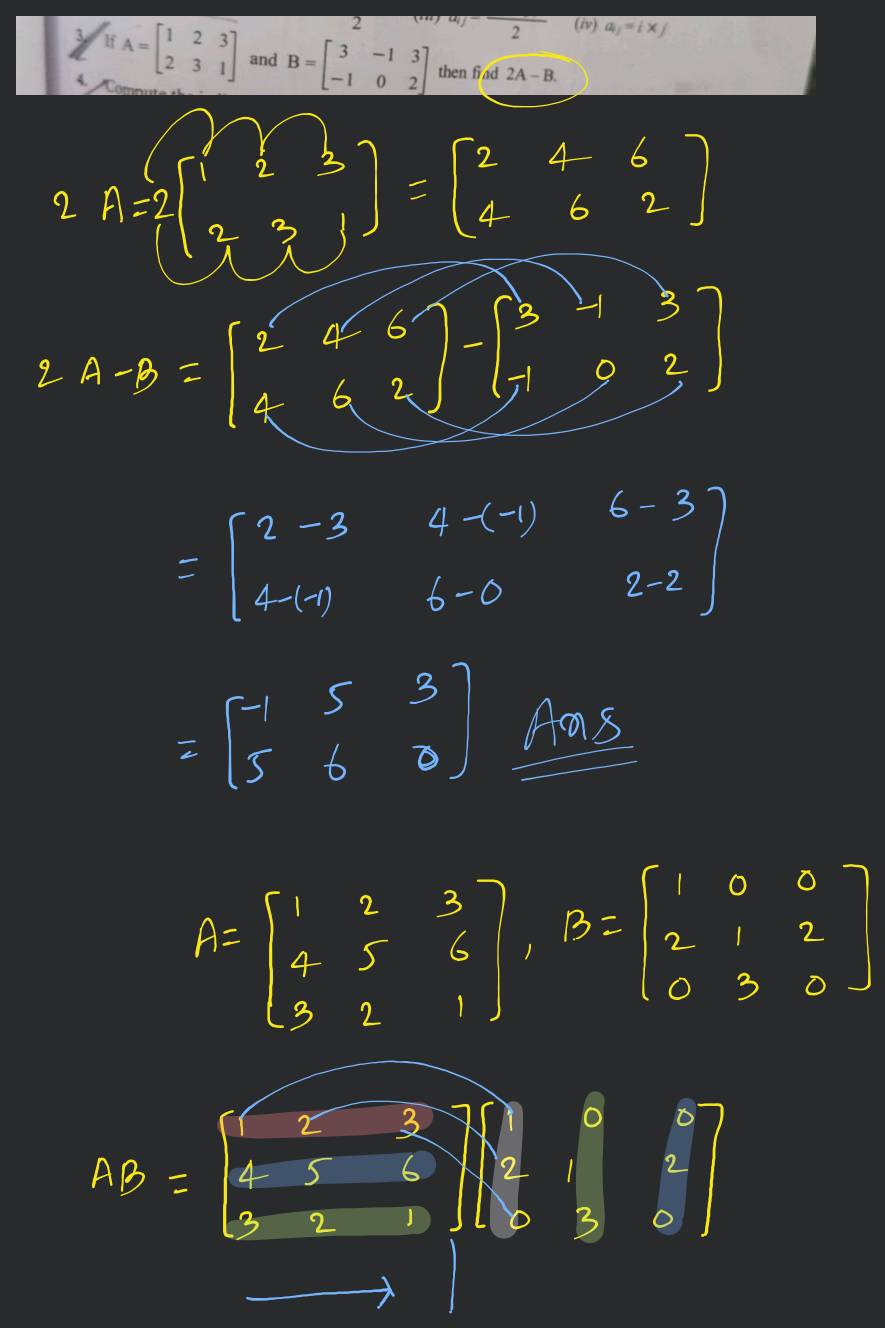 2 (iii) aᵢⱼ = 2 (iv) aᵢⱼ = i × j
3. If A = [1 2 3; 2 3 1] and B = [3 −1 3; −1 0 2] then find 2A − B.
4. Compute the
2 A = 2 [1 2 3; 2 3 1] = [2 4 6; 4 6 2]
2 A - B = [2 4 6; 4 6 2] - [3 -1 3; -1 0 2]
= [2 - 3 4 -(-1) 6 - 3; 4-(-1) 6 - 0 2-2]
= [-1 5 3; 5 6 0] Ans
A = [1 2 3; 4 5 6; 3 2 1] , B = [1 0 0; 2 1 2; 0 3 0]
AB = [1 2 3; 4 5 6; 3 2 1] [1 0 0; 2 1 2; 0 3 0]